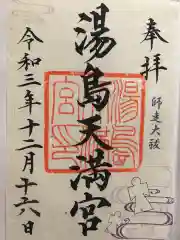 奉拝
師走大祓
湯島天満宮
令和三年十二月十六日